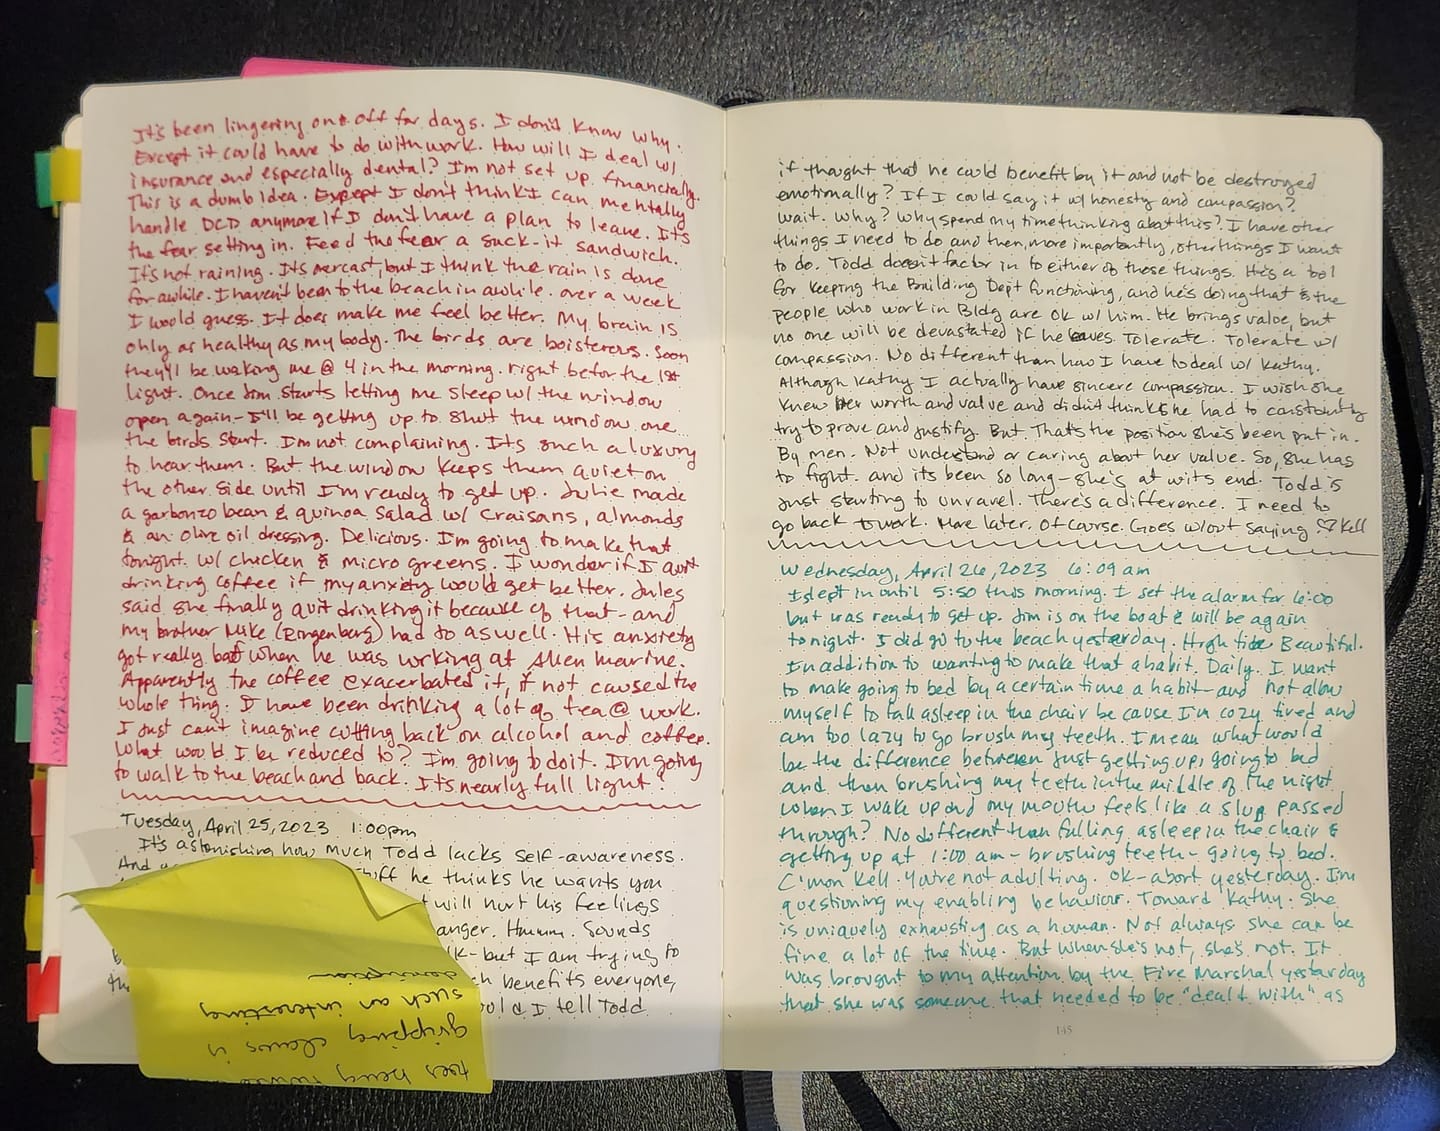 It's been lingering on & off for days. I don't know why.
Except it could have to do with work. How will I deal w/
insurance and especially dental? I'm not set up financially.
This is a dumb idea. Except I don't think I can mentally
handle DCD anymore if I don't have a plan to leave. It's
the fear setting in. Feed the fear a suck-it sandwich.
It's not raining. It's overcast, but I think the rain is done
for awhile. I haven't been to the beach in awhile. over a week
I would guess. It does make me feel better. My brain is
only as healthy as my body. The birds are boisterous. Soon
they'll be waking me @ 4 in the morning. right before the 1st
light. Once Jim starts letting me sleep w/ the window
open again - I'll be getting up to shut the window once
the birds start. I'm not complaining. It's such a luxury
to hear them. But the window keeps them quiet on
the other side until I'm ready to get up. Julie made
a garbonzo bean & quinoa salad w/ craisans, almonds
& an olive oil dressing. Delicious. I'm going to make that
tonight. w/ chicken & micro greens. I wonder if I quit
drinking coffee if my anxiety would get better. Jules
said she finally quit drinking it because of that - and
my brother Mike (Ringenberg) had to as well. His anxiety
got really bad when he was working at Allen Marine.
Apparently the coffee exacerbated it, if not caused the
whole thing. I have been drinking a lot of tea @ work.
I just can't imagine cutting back on alcohol and coffee.
What would I be reduced to? I'm going to do it. I'm going
to walk to the beach and back. It's nearly full light!
Tuesday, April 25, 2023 1:00pm
It's astonishing how much Todd lacks self-awareness.
And
stuff he thinks he wants you
t will hurt his feelings
anger. Hmmm. Sounds
k - but I am trying to
ch benefits everyone,
ool & I tell Todd
such an interesting
gripping claws in
toes being
if thought that he could benefit by it and not be destroyed
emotionally? If I could say it w/ honesty and compassion?
wait. Why? Why spend my time thinking about this? I have other
things I need to do and then, more importantly, other things I want
to do. Todd doesn't factor in to either of those things. He's a tool
for keeping the Building Dept functioning, and he's doing that & the
people who work in Bldg are ok w/ him. He brings value, but
no one will be devastated if he leaves. Tolerate. Tolerate w/
compassion. No different than how I have to deal w/ Kathy.
Although Kathy I actually have sincere compassion. I wish she
knew her worth and value and didn't think she had to constantly
try to prove and justify. But. That's the position she's been put in.
By men. Not understand or caring about her value. So, she has
to fight. and its been so long - she's at wits end. Todd is
just starting to unravel. There's a difference. I need to
go back to work. More later. Of course. Goes w/out saying ♡ Kell
Wednesday, April 26, 2023 6:09 am
I slept in until 5:50 this morning. I set the alarm for 6:00
but was ready to get up. Jim is on the boat & will be again
tonight. I did go to the beach yesterday. High tide. Beautiful.
In addition to wanting to make that a habit. Daily. I want
to make going to bed by a certain time a habit - and not allow
myself to fall asleep in the chair because I'm cozy tired and
am too lazy to go brush my teeth. I mean what would
be the difference between just getting up, going to bed
and then brushing my teeth in the middle of the night
when I wake up and my mouth feels like a slug passed
through? No different than falling asleep in the chair &
getting up at 1:00 am - brushing teeth - going to bed.
C'mon Kell. You're not adulting. OK - abort yesterday. I'm
questioning my enabling behavior. Toward Kathy. She
is uniquely exhausting as a human. Not always she can be
fine a lot of the time. But when she's not, she's not. It
was brought to my attention by the Fire Marshal yesterday
that she was someone that needed to be "dealt with" as
145